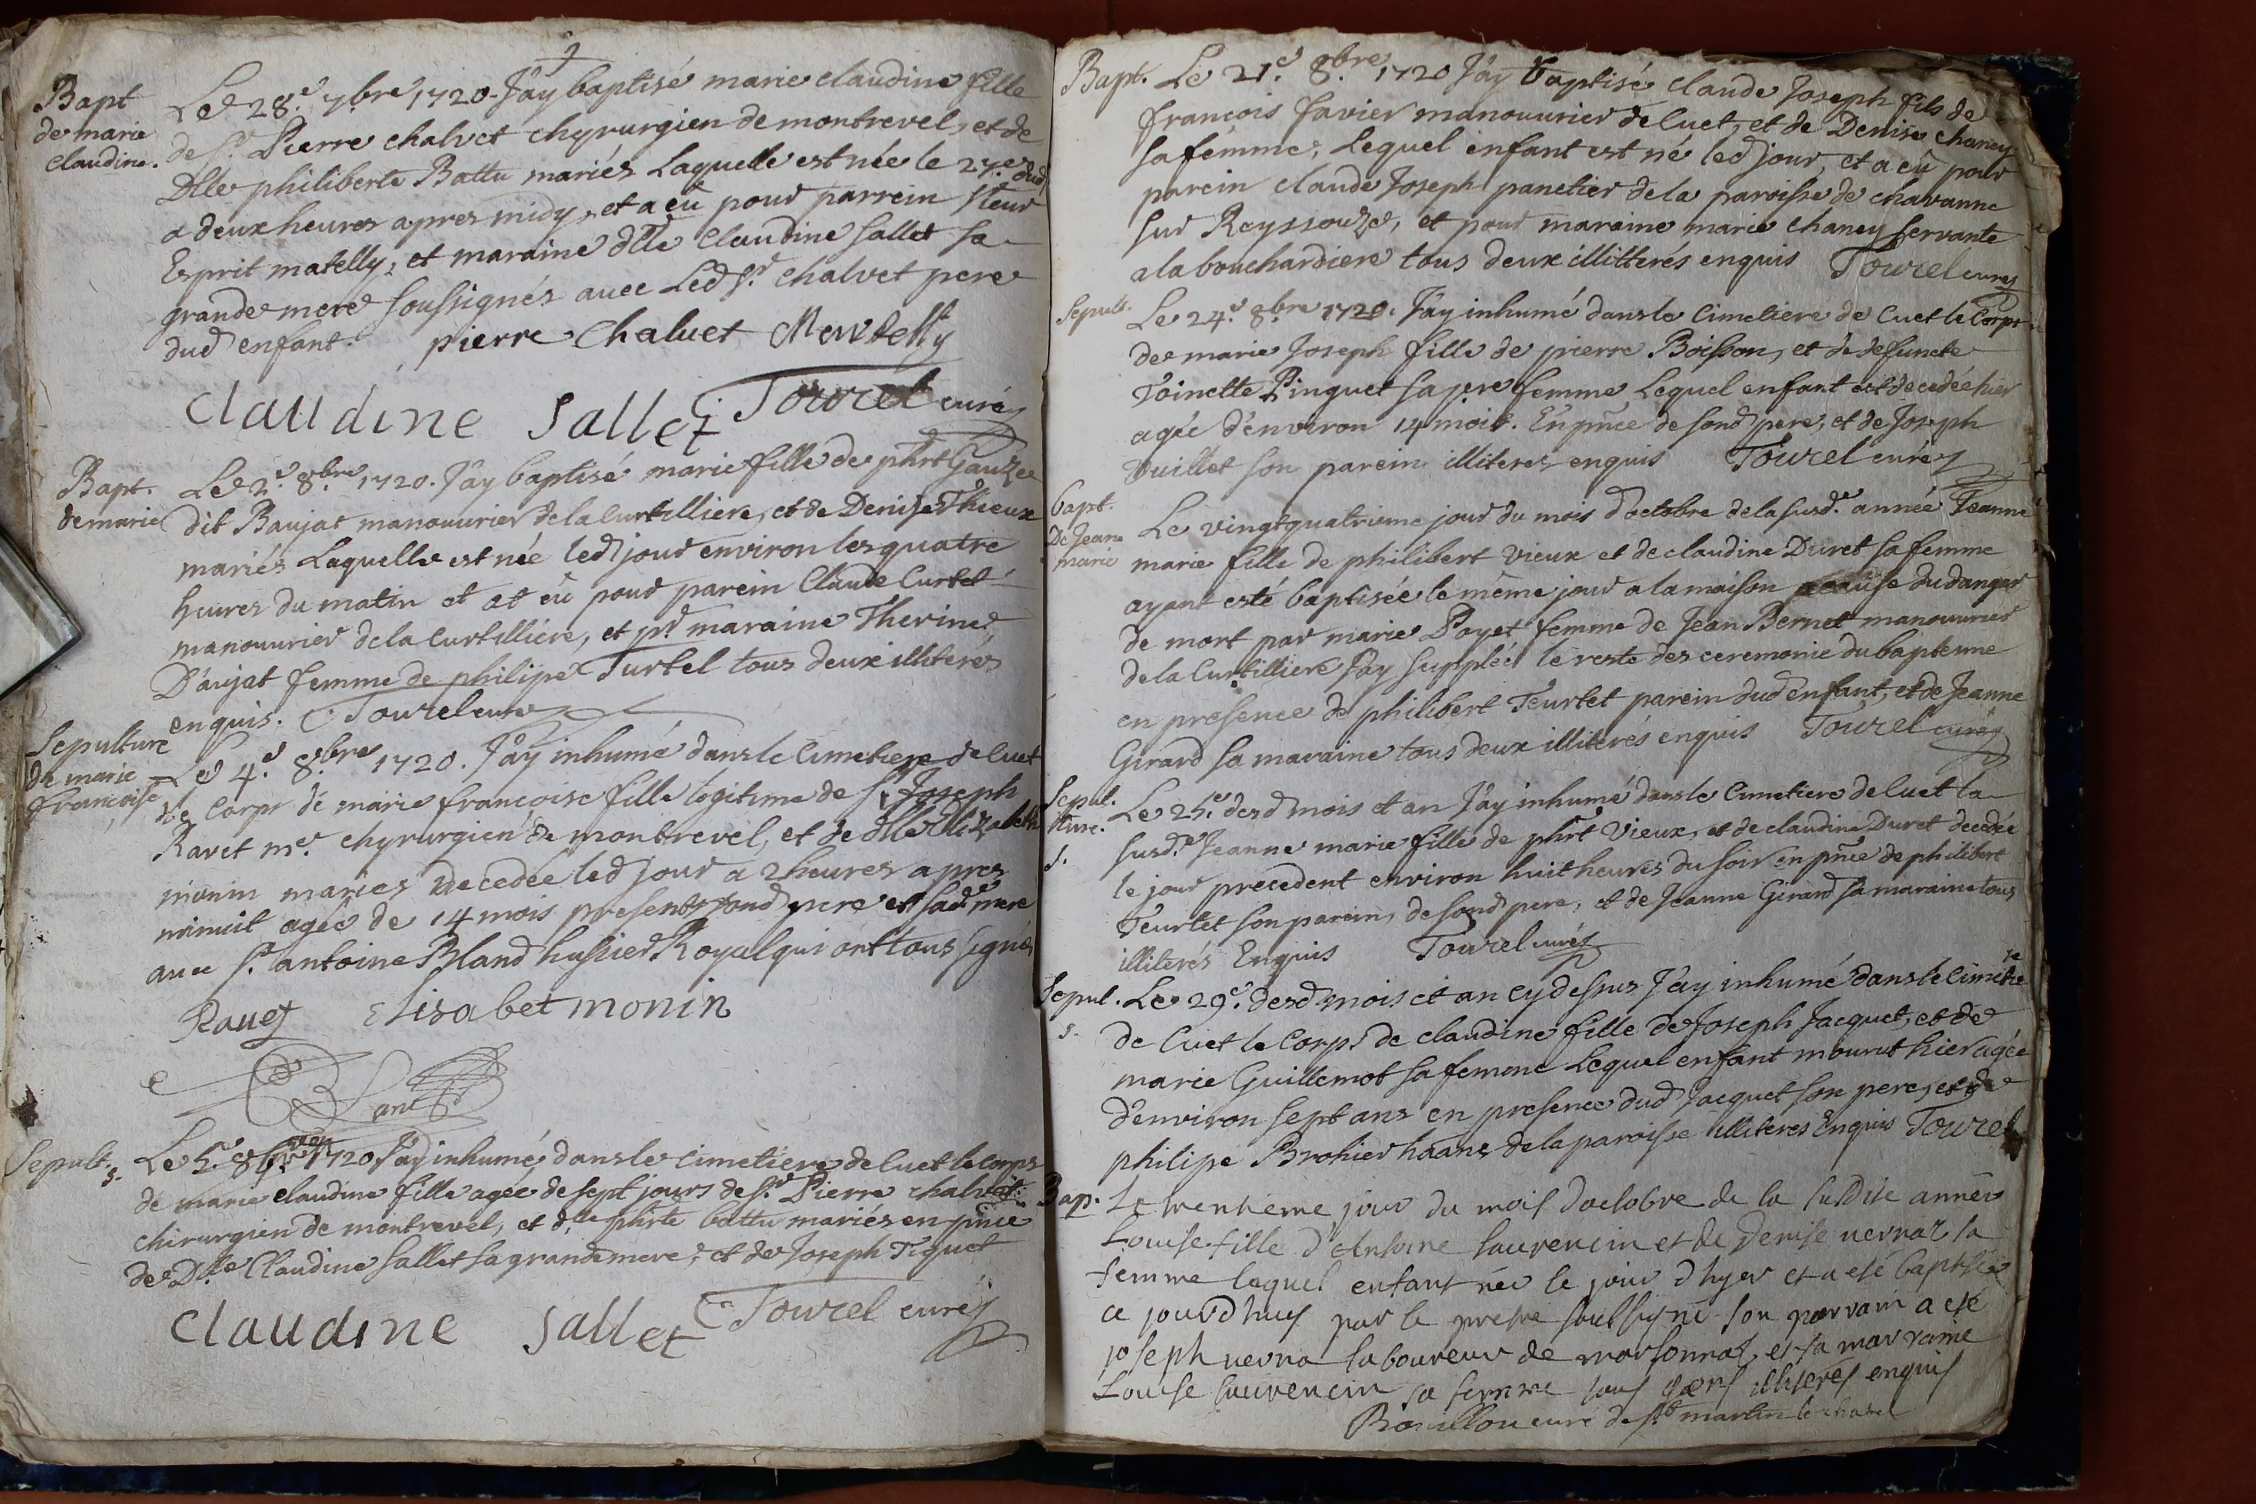 Bapt
de marie
claudine.
Le 28.e 7bre 1720. J'ay baptisé marie claudine fille
de Sr. Pierre chalvet chyrurgien de montrevel, et de
Dlle philiberte Battu mariés Laquelle est née le 27.e dud
a deux heures apres midy, et a eü pour parrein sieur
Esprit matelly, et maraine dlle Claudine Sallet sa
grande mere soussignés avec Led Sr. chalvet pere
dud enfant. pierre Chaluet Mentelly
Claudine Sallet Tourel curé
Bapt.
de marie
Le 2.e 8bre 1720. J'ay baptisé marie fille de phrt Gauze
dit Baujat manouurier de la Curtilliere, et de Denise Thieux
mariés Laquelle est née led jour environ les quatre
heures du matin et at eü pour parein Claude Curtet
manouurier de la Curtilliere, et pr maraine Therine
D'aujat femme de philipe Turtel tous deux illiterés
enquis. Tourel curé
Sepulture
de marie
francoise
Le 4.e 8.bre 1720. J'ay inhumé dans le Cimetiere de Cuet
le Corps de marie francoise fille légitime de Sr Joseph
Ravet me. chyrurgien de montrevel, et de dlle Elizabeth
monin mariés decedée led jour a 2 heures apres
minuit agée de 14 mois presents sond pere et sad mere
avec Sr. antoine Bland hussier Royal qui ont tous signés
Rauet Elisabet monin
Bland
Sepult.
s.
Le 5.e 8bre 1720 J'ay inhumé dans le cimetiere de Cuet le corps
de marie claudine fille agée de sept jours de Sr. Pierre chalvet
chirurgien de montrevel, et dlle phirte battu mariés en pnce
de Dlle Claudine Sallet sa grande mere, et de Joseph Tiquet
Claudine Sallet Tourel curé
Bapt. Le 21.e 8.bre 1720 J'ay baptisé claude Joseph fils de
francois favier manouurier de Cuet, et de Denise chaney
sa fémme, Lequel enfant est né led jour, et a eü pour
parein claude Joseph panetier de la paroisse de chavanne
sur Reyssouze, et pour maraine marie chaney servante
a la bouchardiere tous deux illitterés enquis Tourel curé
Sepult.
Le 24.e 8.bre 1720. J'ay inhumé dans le Cimetiere de Cuet le Corps
de marie Joseph fille de pierre Boisson, et de defuncte
Toinette Pinguet sa pre femme Lequel enfant est decedée hier
agée d'environ 14 mois. En pnce de sond pere, et de Joseph
Vuillet son parein illiterez enquis Tourel curé
bapt.
De Jeanne
marie
Le vingtquatrieme jour du mois d'octobre de la susd.e année Jeanne
marie fille de philibert vieux et de claudine Duret sa femme
ayant esté baptisée le méme jour a la maison a cause du danger
de mort par marie Poyet femme de Jean Bernet manouurier
de la Curtilliere J'ay supplée le reste des ceremonie du bapteme
en presence de philibert Teurtet parein dud enfant, et de Jeanne
Girard sa maraine tous deux illiterés enquis Tourel curé
Sepul.
ture.
s.
Le 25.e desd mois et an J'ay inhumé dans le Cimetiere de Cuet la
susd.e Jeanne marie fille de phrt Vieux, et de claudine Duret decedée
le jour precedent environ huit heures du soir en pnce de philibert
Teurtet son parein, de sond pere, et de Jeanne Girard sa maraine tous
illiterés Enquis Tourel curé
Sepul.
s.
Le 29.e desd mois et an cy dessus J'ay inhumé dans le cimetre
de Cuet le Corps de claudine fille de Joseph Jacquet, et de
marie Guillemot sa femme Lequel enfant mourut hier agée
d'environ sept ans en presence dud Jacquet son pere, et de
philipe Brohier de la paroisse illiteres Enquis Tourel
Bap. Le trentieme jour du mois d'octobre de la susdite année
Louise fille d'Antoine laurencin et de Denise uernat sa
femme lequel enfant née le jour d'hyer et a esté baptisée
ce jourd'huy par le prestre soubsigné son parrain a esté
joseph uerna laboureur de marsonnat, et sa marraine
Louise laurencin sa femme tous illiteres enquis
Bouillon curé de st. martin le chatel